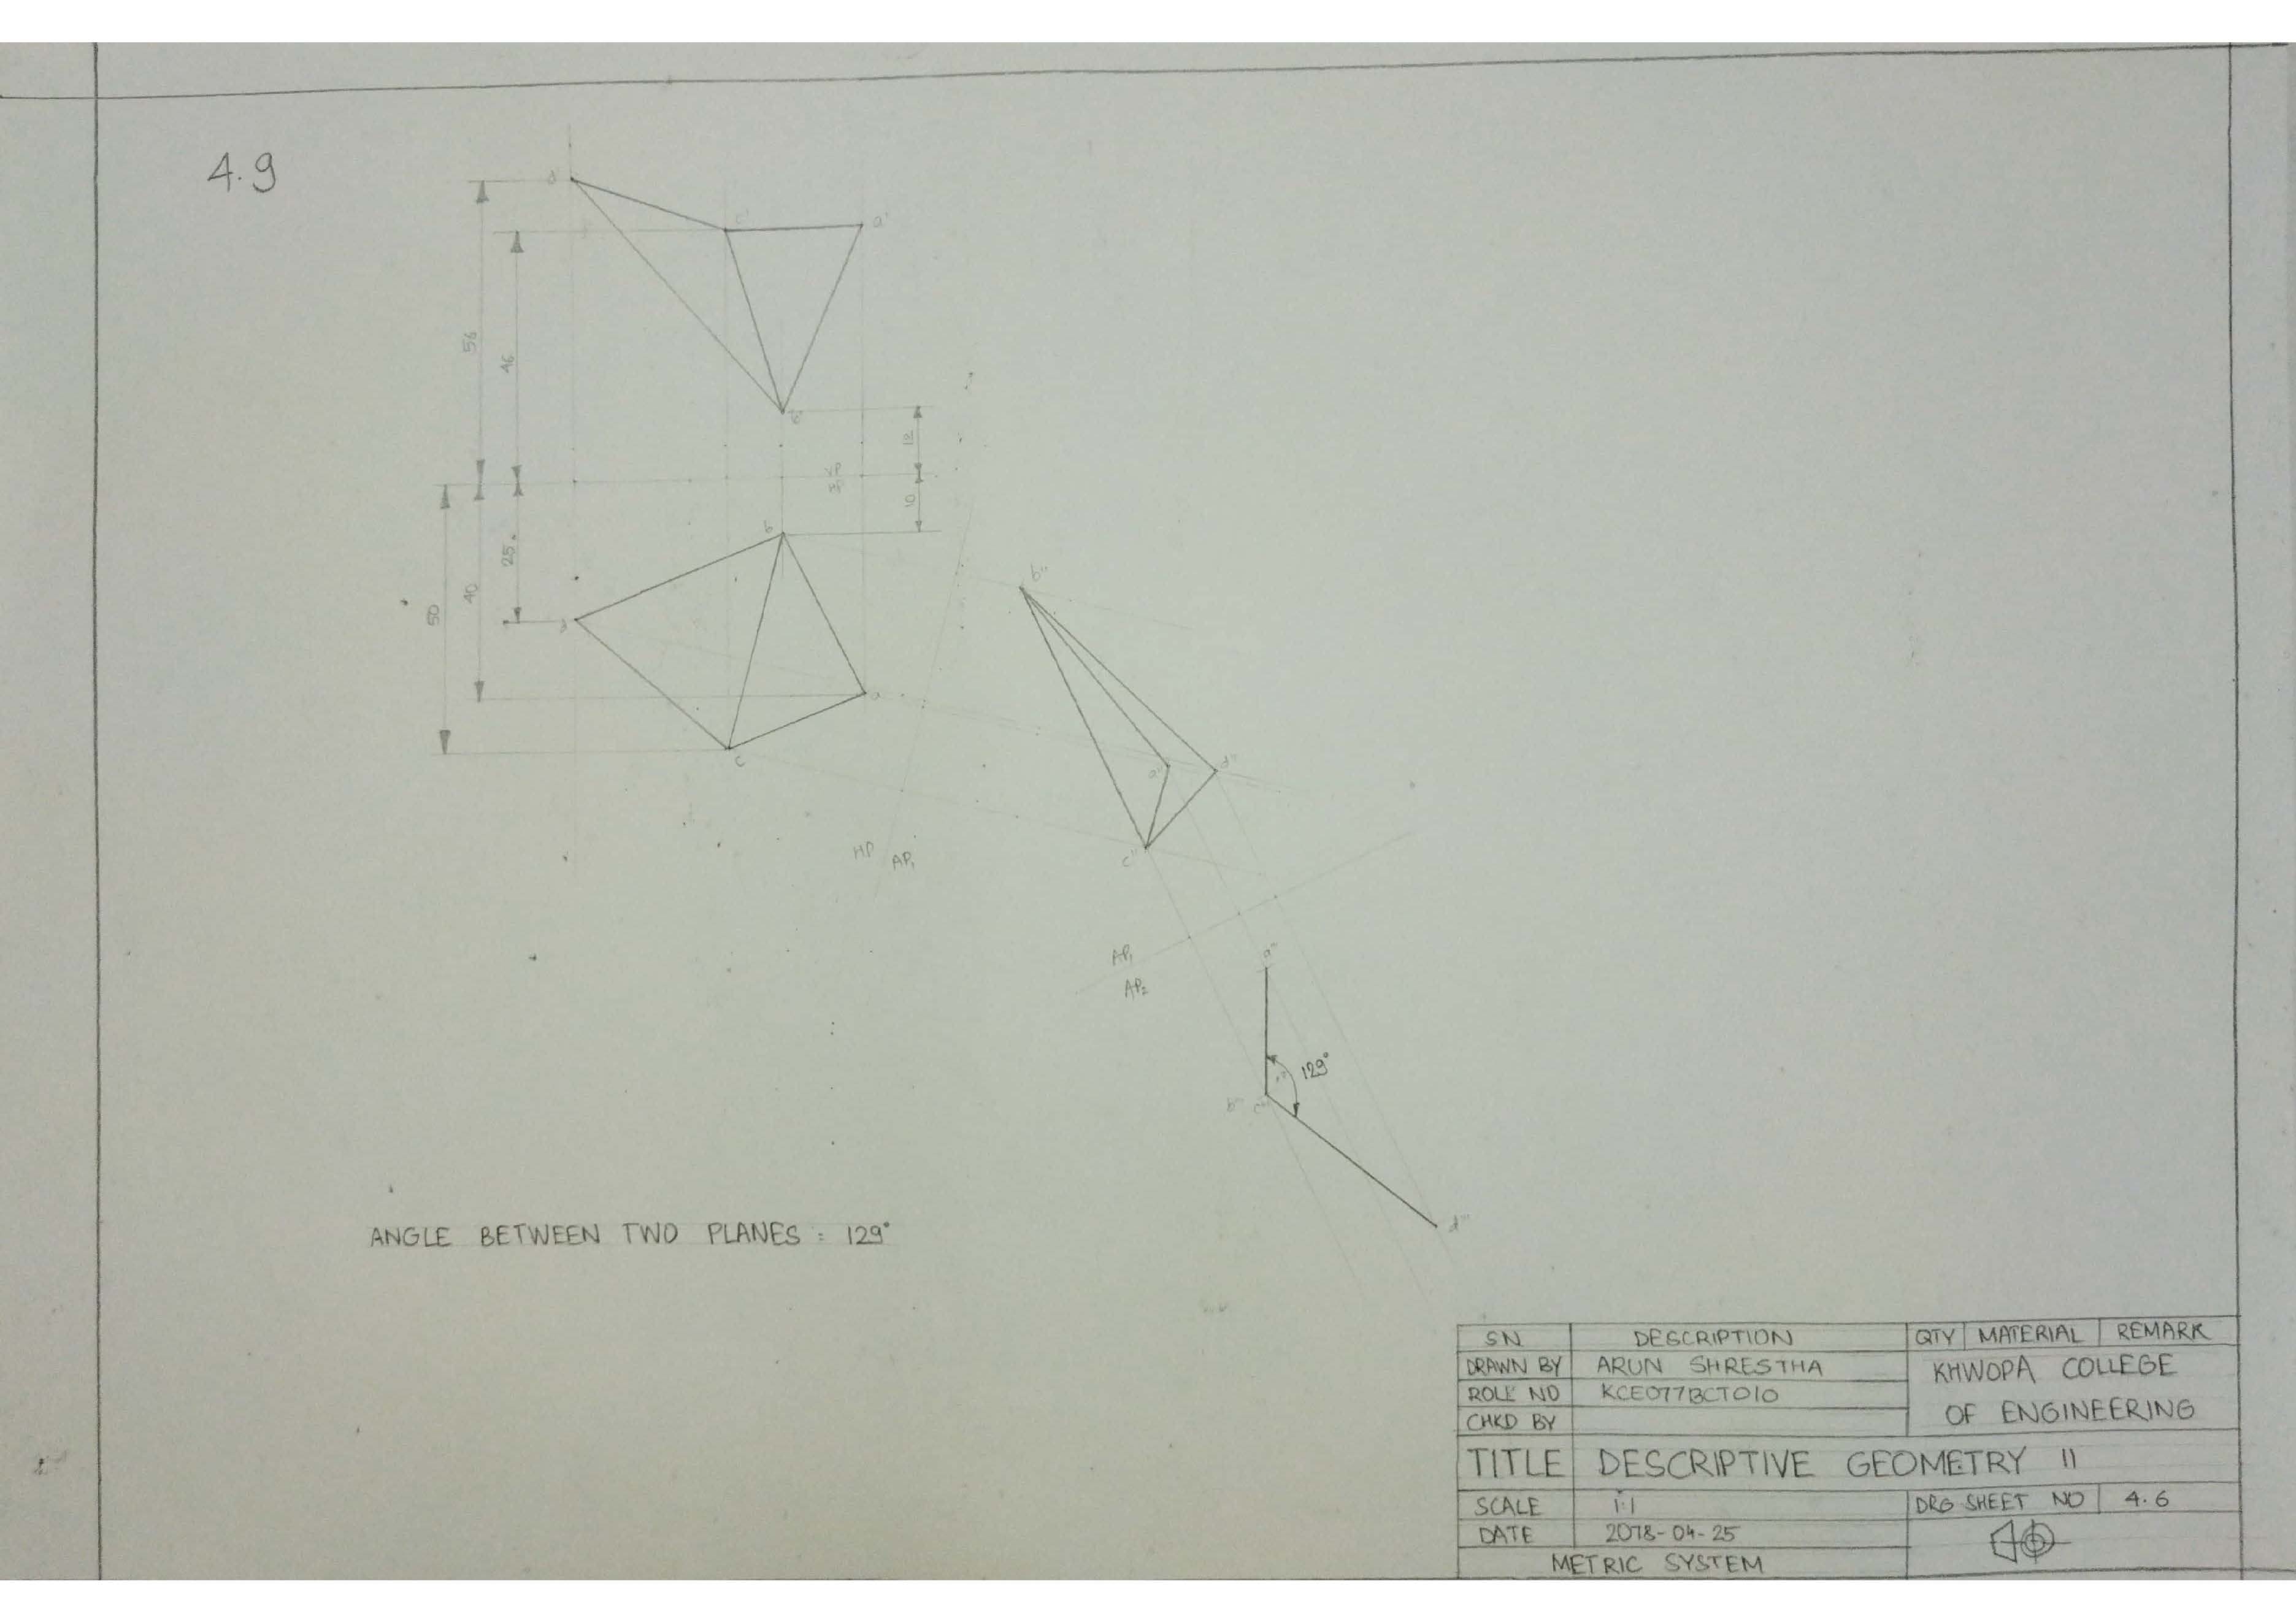 4.9
a'
56
46
12
10
25
40
50
c
HP AP1
d"
c"
AP1
AP2
129°
d'''
ANGLE BETWEEN TWO PLANES : 129°
SN DESCRIPTION QTY MATERIAL REMARK
DRAWN BY ARUN SHRESTHA KHWOPA COLLEGE
ROLL NO KCE077BCT010
CHKD BY OF ENGINEERING
TITLE DESCRIPTIVE GEOMETRY II
SCALE 1:1 DRG SHEET NO 4.6
DATE 2078-04-25
METRIC SYSTEM